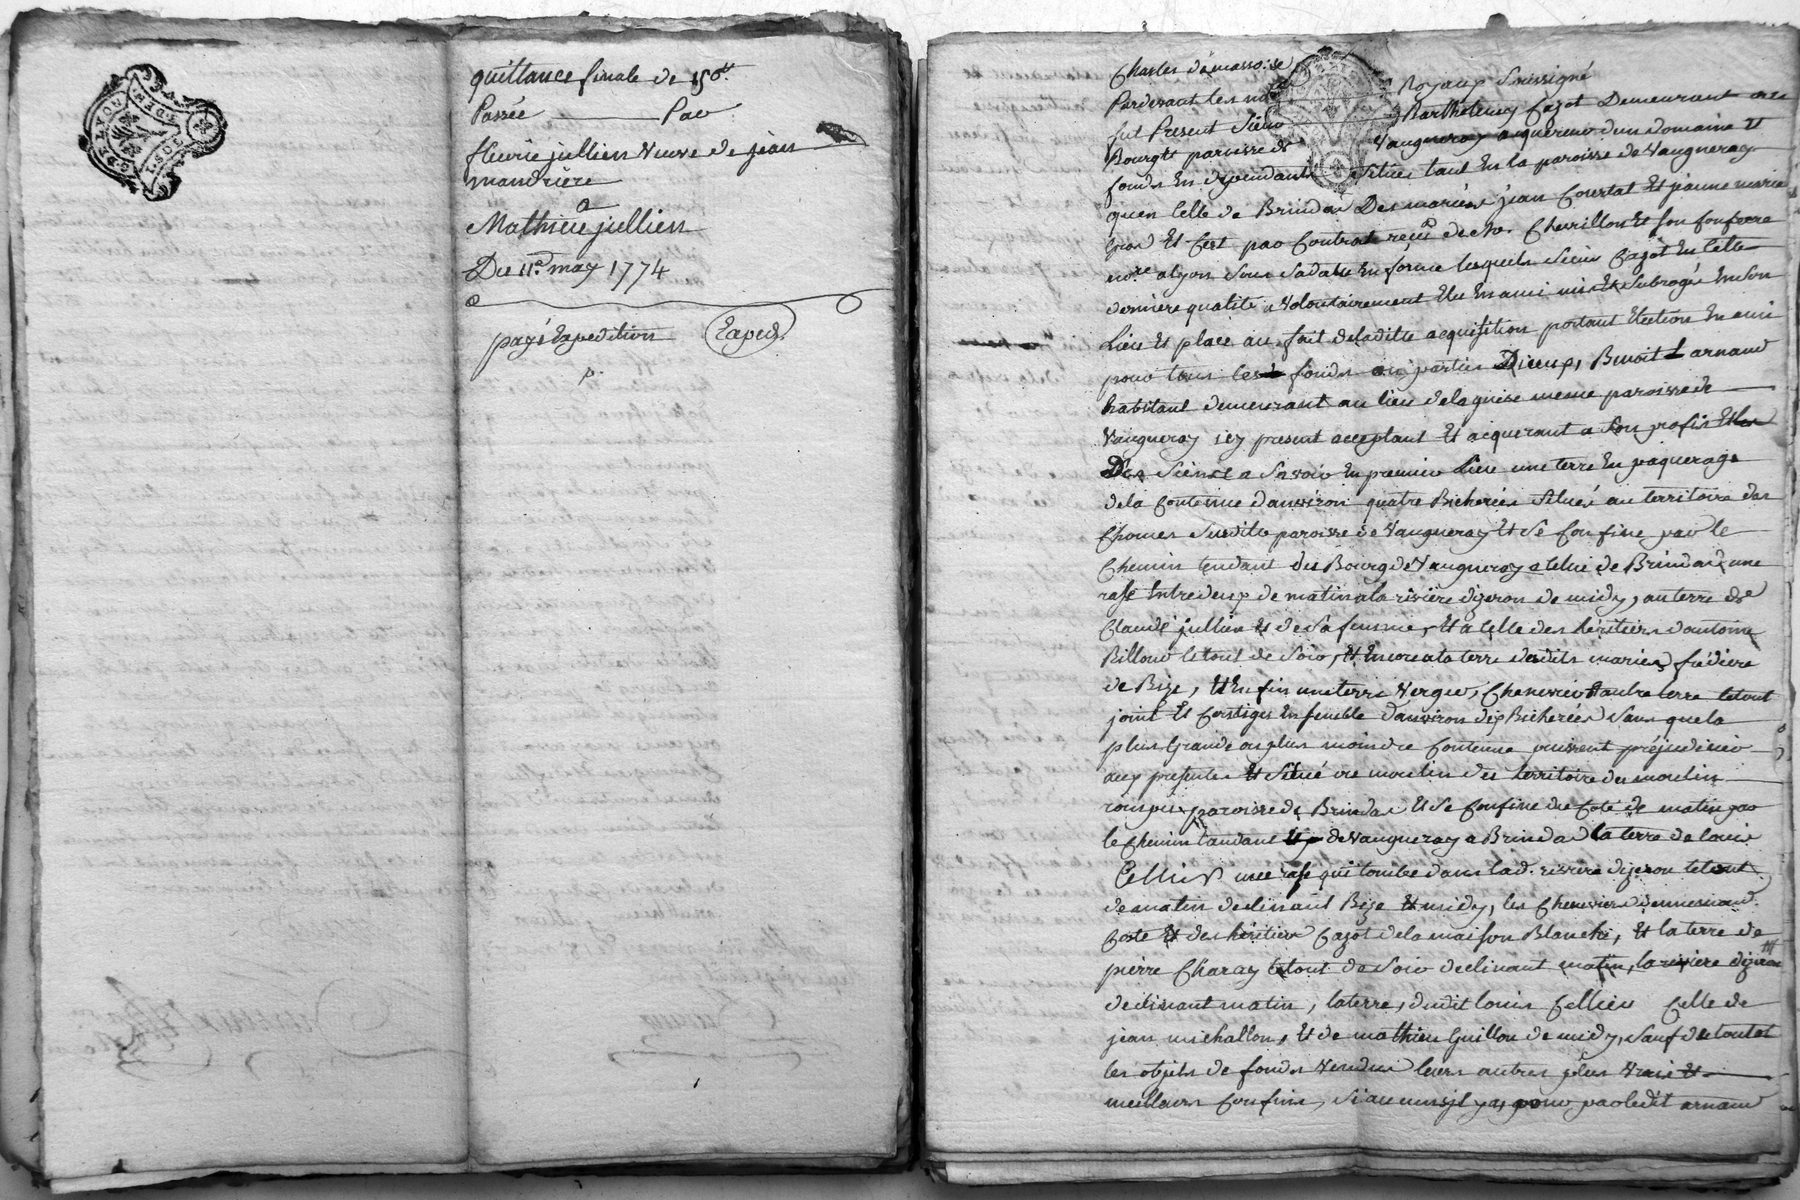 quittance finale de 150ᵗᵗ
Passée Par
fleurie jullien veuve de jean
mandrière
a
Mathieu jullien
Du 11ᵉ may 1774
payé Expedition Exped.
p.
Pardevant les no royaux soussigné
fut Present Sieur Barthelemy Cazot Demeurant au
Bourgt paroisse de Vaugneray acquereur dun domaine et
fonds En dependants situés tant En la paroisse de Vaugneray
quen Celle de Brindas Des mariés jean Courtat Et jeanne marie
Et Cest par Contrat reçu de me. Chevrillon Et son Confrere
nore. alyon sous sa datte En forme lesquels Sieur Cazot En Cette
derniere qualité a volontairement Elu En ami mis Et Subrogé En son
Lieu Et place au fait deladitte acquisition portant Election En ami
pour tous les fonds Benoit arnaud
habitant demeurant au lieu dela meme paroisse de
Vaugneray icy present acceptant Et acquerant a son profit Et
Des Siens a Savoir En premier Lieu une terre En paquerage
dela Contenue danviron quatre Bicherées Situés au territoire des
Chomes Susditte paroisse de Vaugneray Et Se Confine par le
Chemin tendant du Bourg de Vaugneray a Celui de Brindas une
rase Entredeux de matin ala riviere dizeron de midy, au terre de
Claude jullien Et de Sa femme, Et a Celle des héritiers dantoine
Billoud letout de Soir, Et Encore ala terre desdits mariés
de Bize, Et Enfin une terre Verger, Chenevier Et autre terre letout
joint Et Contigus Ensemble danviron dix Bicherées Sans quela
plus Grande ou plus moindre Contenue puissent préjudicier
aux presentes Et Situé territoire du moulin
rompu paroisse de Brindas Et Se Confine du Coté de matin par
le Chemin tandant de Vaugneray a Brindas la terre de louis
Cellier une rase qui tombe dans lad. riviere dizeron letout
de matin declinant Bize Et midy, les Cheneviers
Coste Et des héritiers Cazot dela maison Blanche, Et la terre de
pierre Charay letout de Soir declinant matin, la riviere dizeron
declinant matin, la terre, dudit louis Cellier Celle de
jean michallon, Et de mathieu Guillon de midy, Sauf de toutes
les objets de fonds Vendus leurs autres plus Vrais Et
meilleurs Confins, Si aucuns jl y a, pour par ledit arnaud